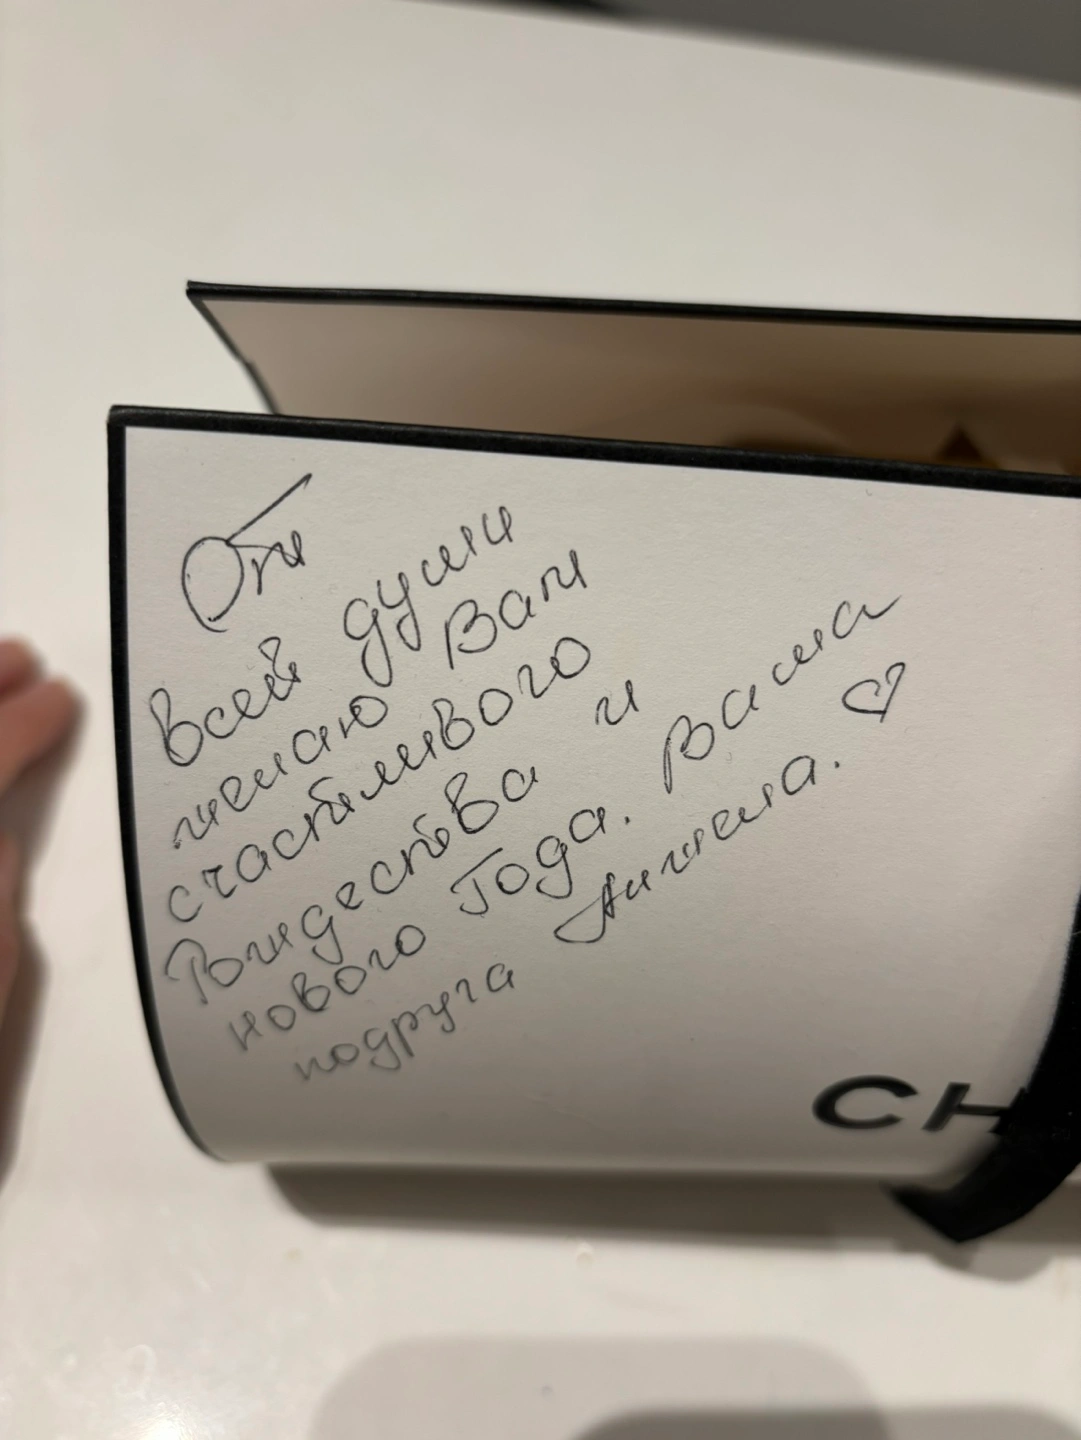 От
всей души
желаю Вам
счастливого
Рождества и
нового Года. Ваша
подруга Анжела. ♡
CH